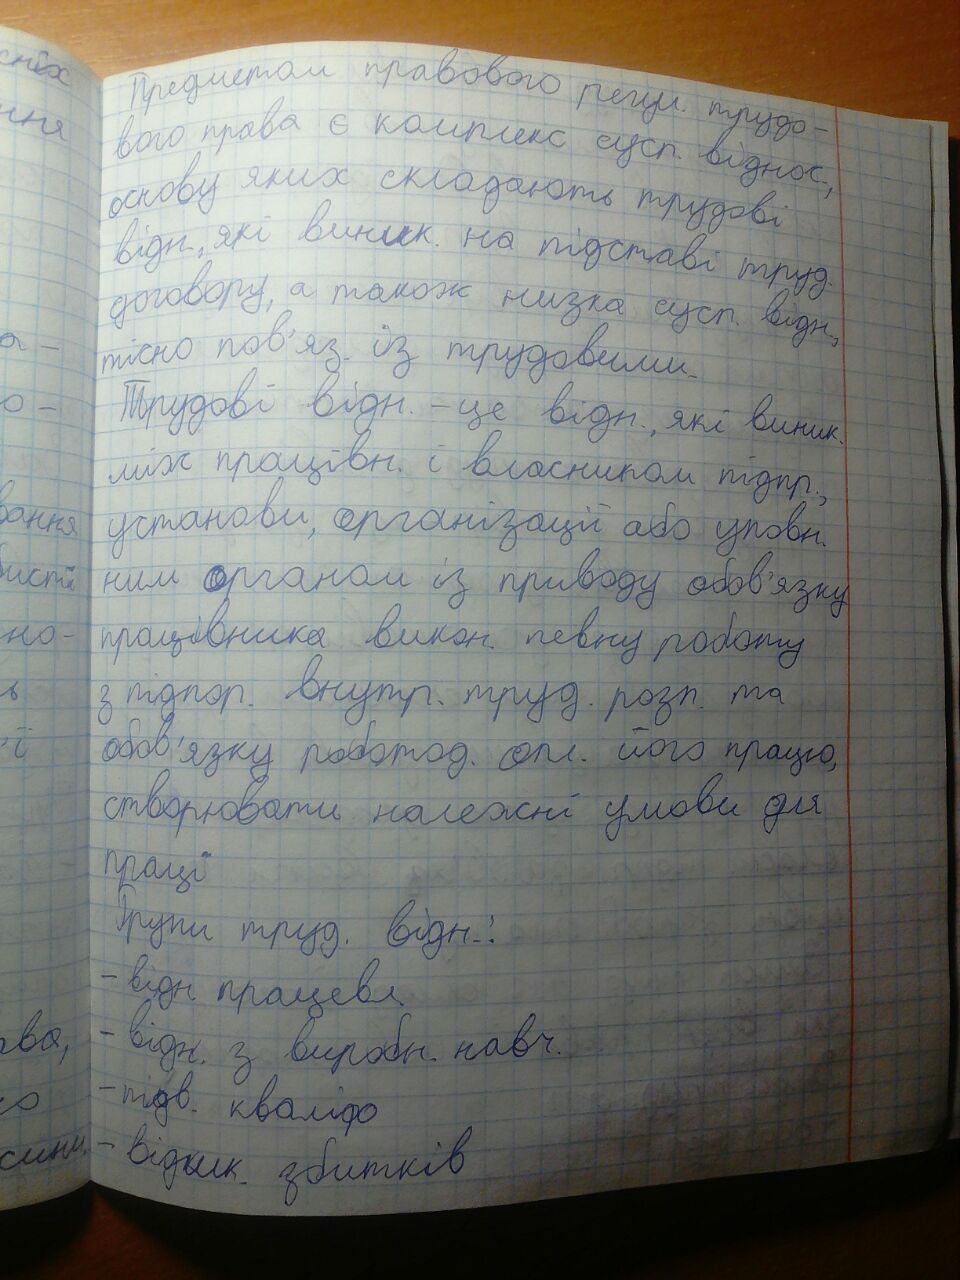 сніх
ння
а -
о -
вання
бисті
но-
ь
ії
ова,
ко
сини,
Предметом правового регул. трудо-
вого права є комплекс сусп. віднос.,
основу яких складають трудові
відн., які виник. на підставі труд.
договору, а також низка сусп. відн.,
тісно пов'яз. із трудовими.
Трудові відн. - це відн., які виник.
між працівн. і власником підпр.,
установи, організації або уповн.
ним органом із приводу обов'язку
працівника викон. певну роботу
з підпор. внутр. труд. розп. та
обов'язку роботод. опл. його працю,
створювати належні умови для
праці
Групи труд. відн.:
- відн. працевл.
- відн. з виробн. навч.
- підв. кваліф
- відшк. збитків